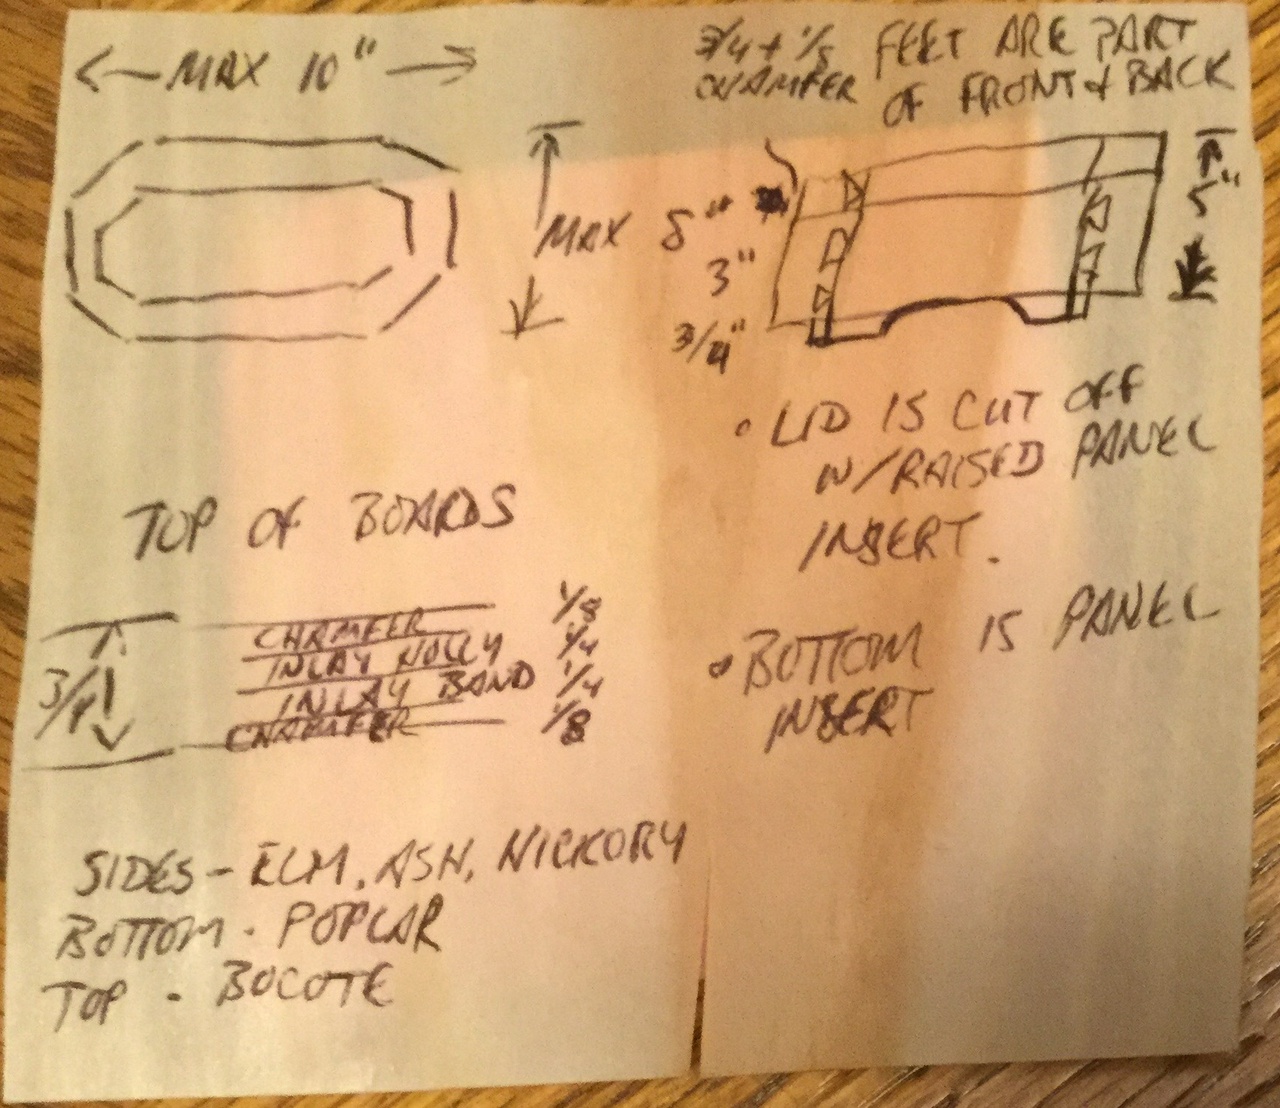 MAX 10"
3/4 + 1/8 FEET ARE PART
CHAMFER OF FRONT & BACK
MAX 5"
3"
3/4"
5"
• LID IS CUT OFF
W/RAISED PANEL
INSERT.
TOP OF BOARDS
3/4
CHAMFER 1/8
INLAY HOLLY 1/4
INLAY BAND 1/4
CHAMFER 1/8
• BOTTOM IS PANEL
INSERT
SIDES - ELM, ASH, HICKORY
BOTTOM - POPLAR
TOP - BOCOTE